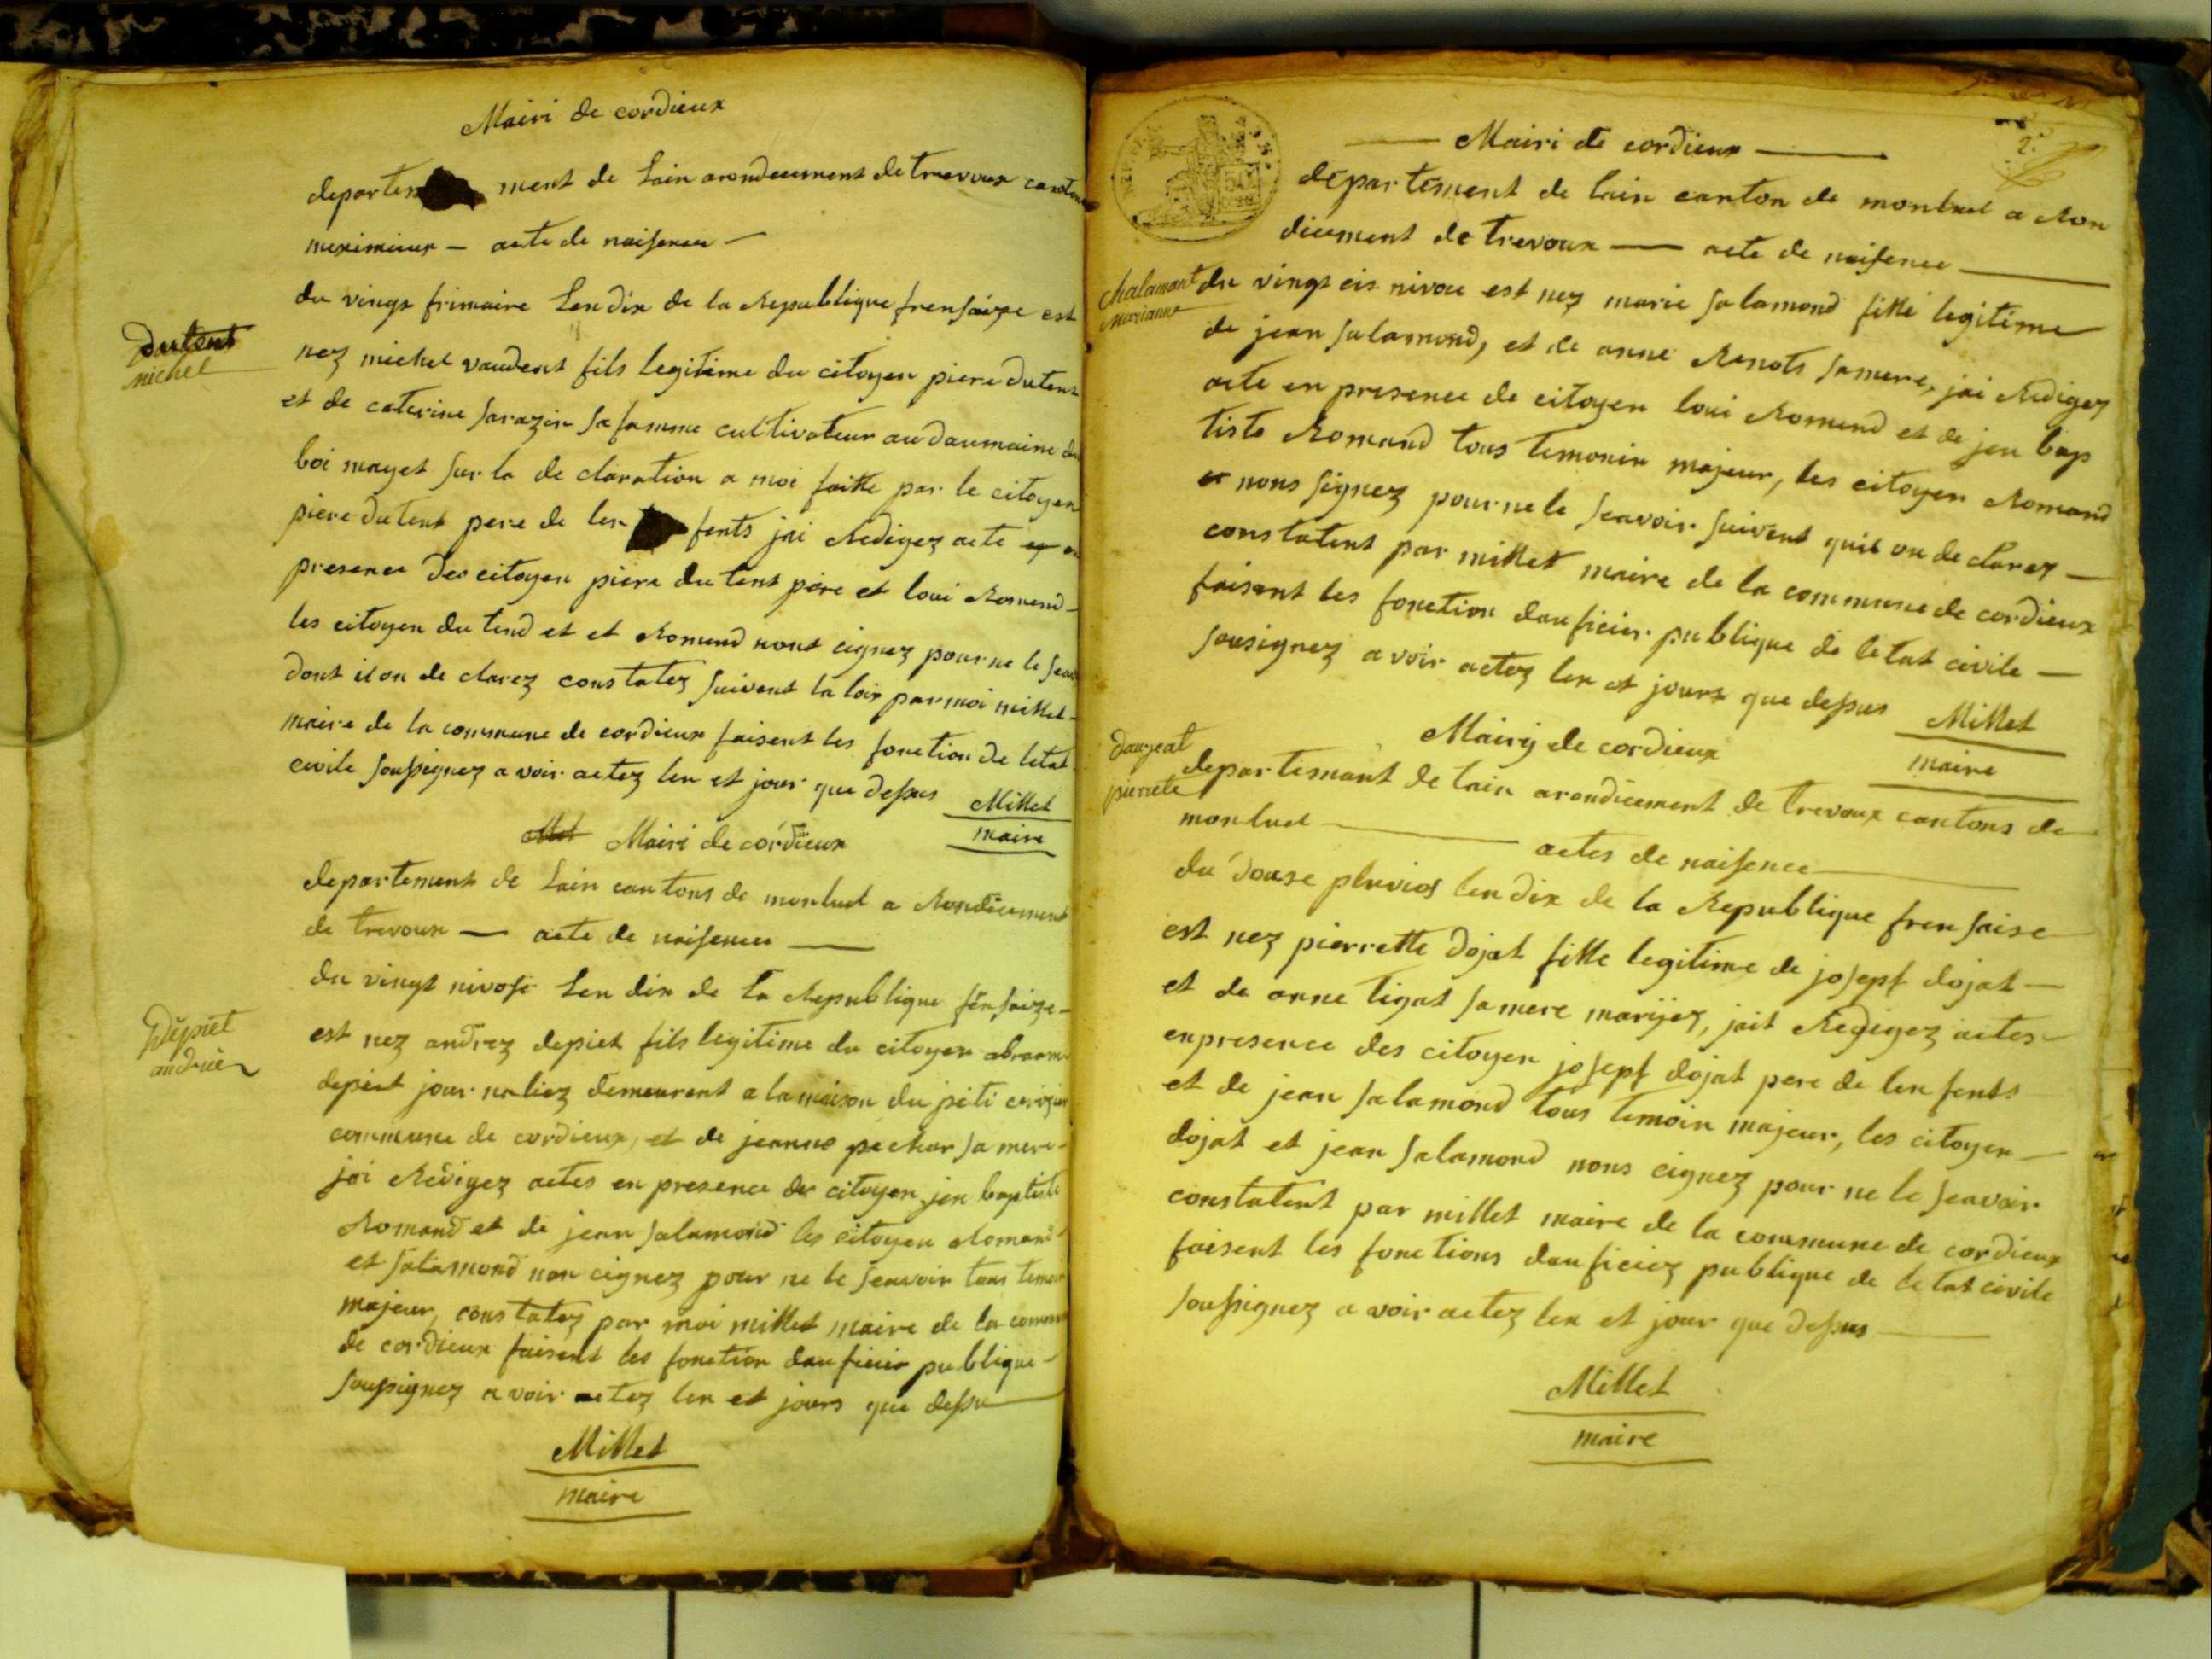 Mairi de cordieux
departem ment de Lain arondecement de trevoux canton
meximieux — acte de naisence —
du vingt frimaire Lendix de la Republique frensaize est
dutent
michel
nez michel vaudent fils legitime du citoyen piere dutent
et de caterine sarazin sa famme cultivateur audaumaine du
boi mayet sur la de claration a moi faitte par le citoyen
piere dutent pere de len fents jai Redigez acte
presence des citoyen piere du tent père et loui Romend
les citoyen du tend et et Romend nont cignez pour ne le
dont il on de clarez constatez suivent la loix par moi millet
maire de la commune de cordieux faisent les fonction de letat
civile soussignez a voir actez len et jour que dessus Millet
maire
Mairi de cordieux
departement de Lain cantons de monluel a Rondicement
de trevoux — acte de naisence —
du vingt nivose Len dix de la Republique fensaize
Depiet
andrie
est nez andrez depiet fils legitime du citoyen abraam
depiet jour naliez demeurent a la maison du peti
commune de cordieux, et de jeanne pechar sa mere
jai Redigez actes en presence de citoyen jen baptiste
Romand et de jean salamond les citoyen Romand
et salamond non cignez pour ne le seavoir tous temoin
majeur, constatez par moi millet maire de la commune
de cordieux faisent les fonction dauficier publique
soussignez a voir actez len et jours que dessu
Millet
maire
2.
Mairi de cordieux
departement de lain canton de monluel a Ron
dicement de trevoux — acte de naisence
Chalamant
Marianne
du vingt cis nivoce est nez marie salamond fille legitime
de jean salamond, et de anne Renots samere, jai Redigez
acte en presence de citoyen loui Romend et de jen bap
tiste Romand tous temonin majeur, les citoyen Romand
nons signez pour ne le seavoir suivent quil on de clarez —
constatent par millet maire de la commune de cordieux
faisent les fonction dauficier publique de letat civile —
sousignez a voir actez len et jours que dessus Millet
maire
Mairij de cordieux
daujeat
pierrete
departemant de lain arondicement de trevoux cantons de
monluel — actes de naisence
du douse pluvios lendix de la Republique frensaise
est nez pierrette dojat fille legitime de josepf dojat —
et de anne ligat samere marijez, jait Redigez actes
enpresence des citoyen josepf dojat pere de len fents
et de jean salamond tous temoin majeur, les citoyen —
dojat et jean salamond nons cignez pour ne le seavoir
constatent par millet maire de la commune de cordieux
faisent les fonctions dauficiez publique de letat civile
soussignez a voir actez len et jour que dessus
Millet
maire